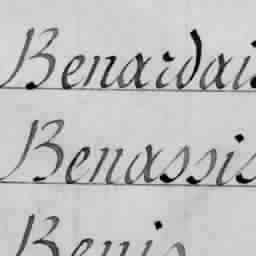 Benardais
Benassis
Benis